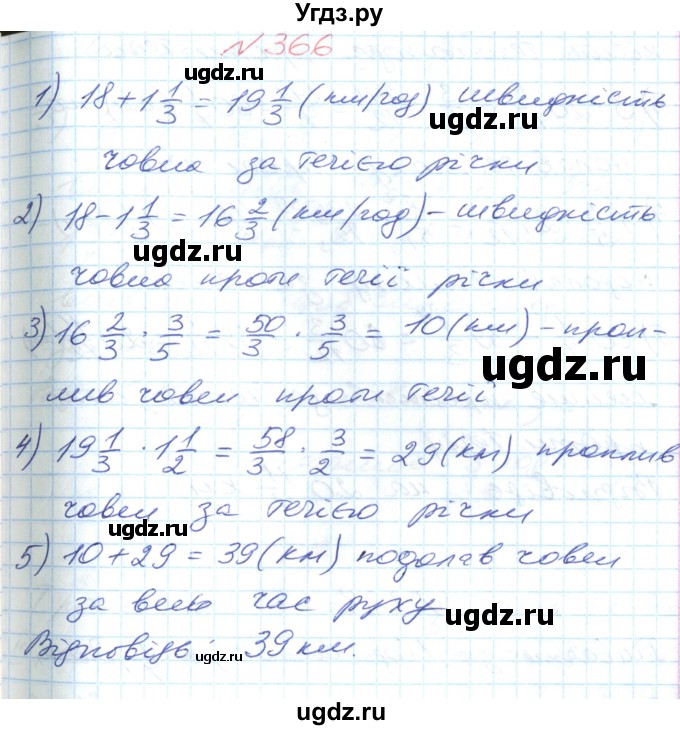 Угдз.ру
№ 366
1) 18 + 1 1/3 = 19 1/3 (км/год) швидкість
човна за течією річки
2) 18 - 1 1/3 = 16 2/3 (км/год) - швидкість
човна проти течії річки
3) 16 2/3 · 3/5 = 50/3 · 3/5 = 10 (км) - проп-
лив човен проти течії
4) 19 1/3 · 1 1/2 = 58/3 · 3/2 = 29 (км) проплив
човен за течією річки
5) 10 + 29 = 39 (км) подолав човен
за весь час руху
Відповідь: 39 км.
ugdz.ru
ugdz.ru
ugdz.ru
ugdz.ru
ugdz.ru
ugdz.ru
ugdz.ru
ugdz.ru
ugdz.ru